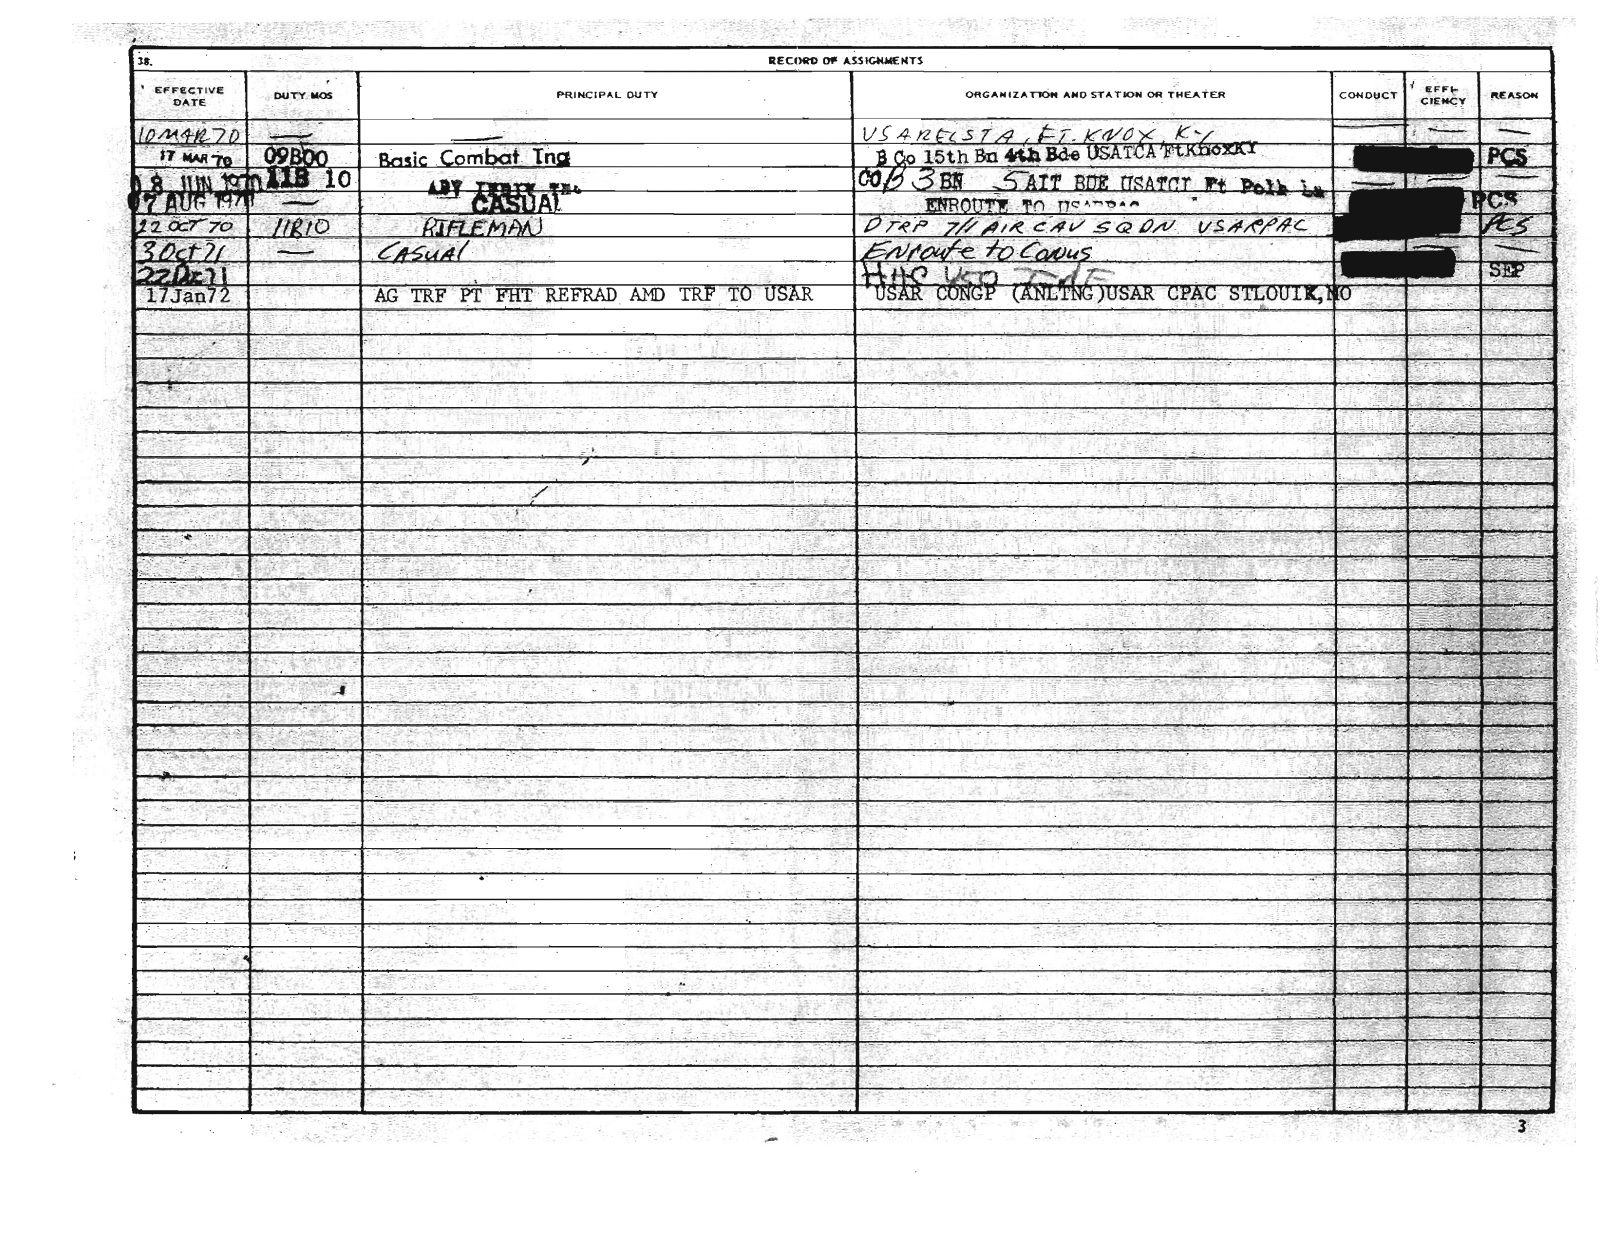 38. RECORD OF ASSIGNMENTS
EFFECTIVE DATE DUTY MOS PRINCIPAL DUTY ORGANIZATION AND STATION OR THEATER CONDUCT EFFI- CIENCY REASON
10 MAR 70 — — USARECSTA, FT. KNOX, Ky — — —
17 MAR 70 09B00 Basic Combat Tng B Co 15th Bn 4th Bde USATCA FtKnoxKY PCS
08 JUN 1970 11B 10 ADV TNG CO B 3 BN 5 AIT BDE USATCI Ft Polk La — — —
07 AUG 1970 — CASUAL ENROUTE TO PCS
22 OCT 70 11B10 RIFLEMAN D TRP 7/1 AIR CAV SQDN USARPAC PCS
3 Oct 71 — CASUAL Enroute to Conus — — —
22 Dec 71 HHC SEP
17Jan72 AG TRF PT FHT REFRAD AMD TRF TO USAR USAR CONGP (ANLTNG)USAR CPAC STLOUIK,MO
3